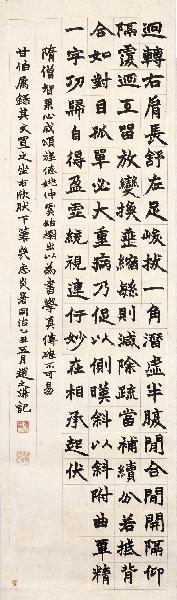 迴轉右肩長舒左足峻拔一角潛虛半腹間合間開隔仰
隔覆迴互留放變換垂縮繁則減除疏當補續分若抵背
合如對目孤單必大重病乃促以側映斜以斜附曲覃精
一字功歸自得盈虛統視連行妙在相承起伏
隋僧智果心成頌姚仲實始出以為書學真傳確不可易
甘伯屬錄其文置之坐右欣然下筆幾忘炎暑同治乙丑五月趙之謙記